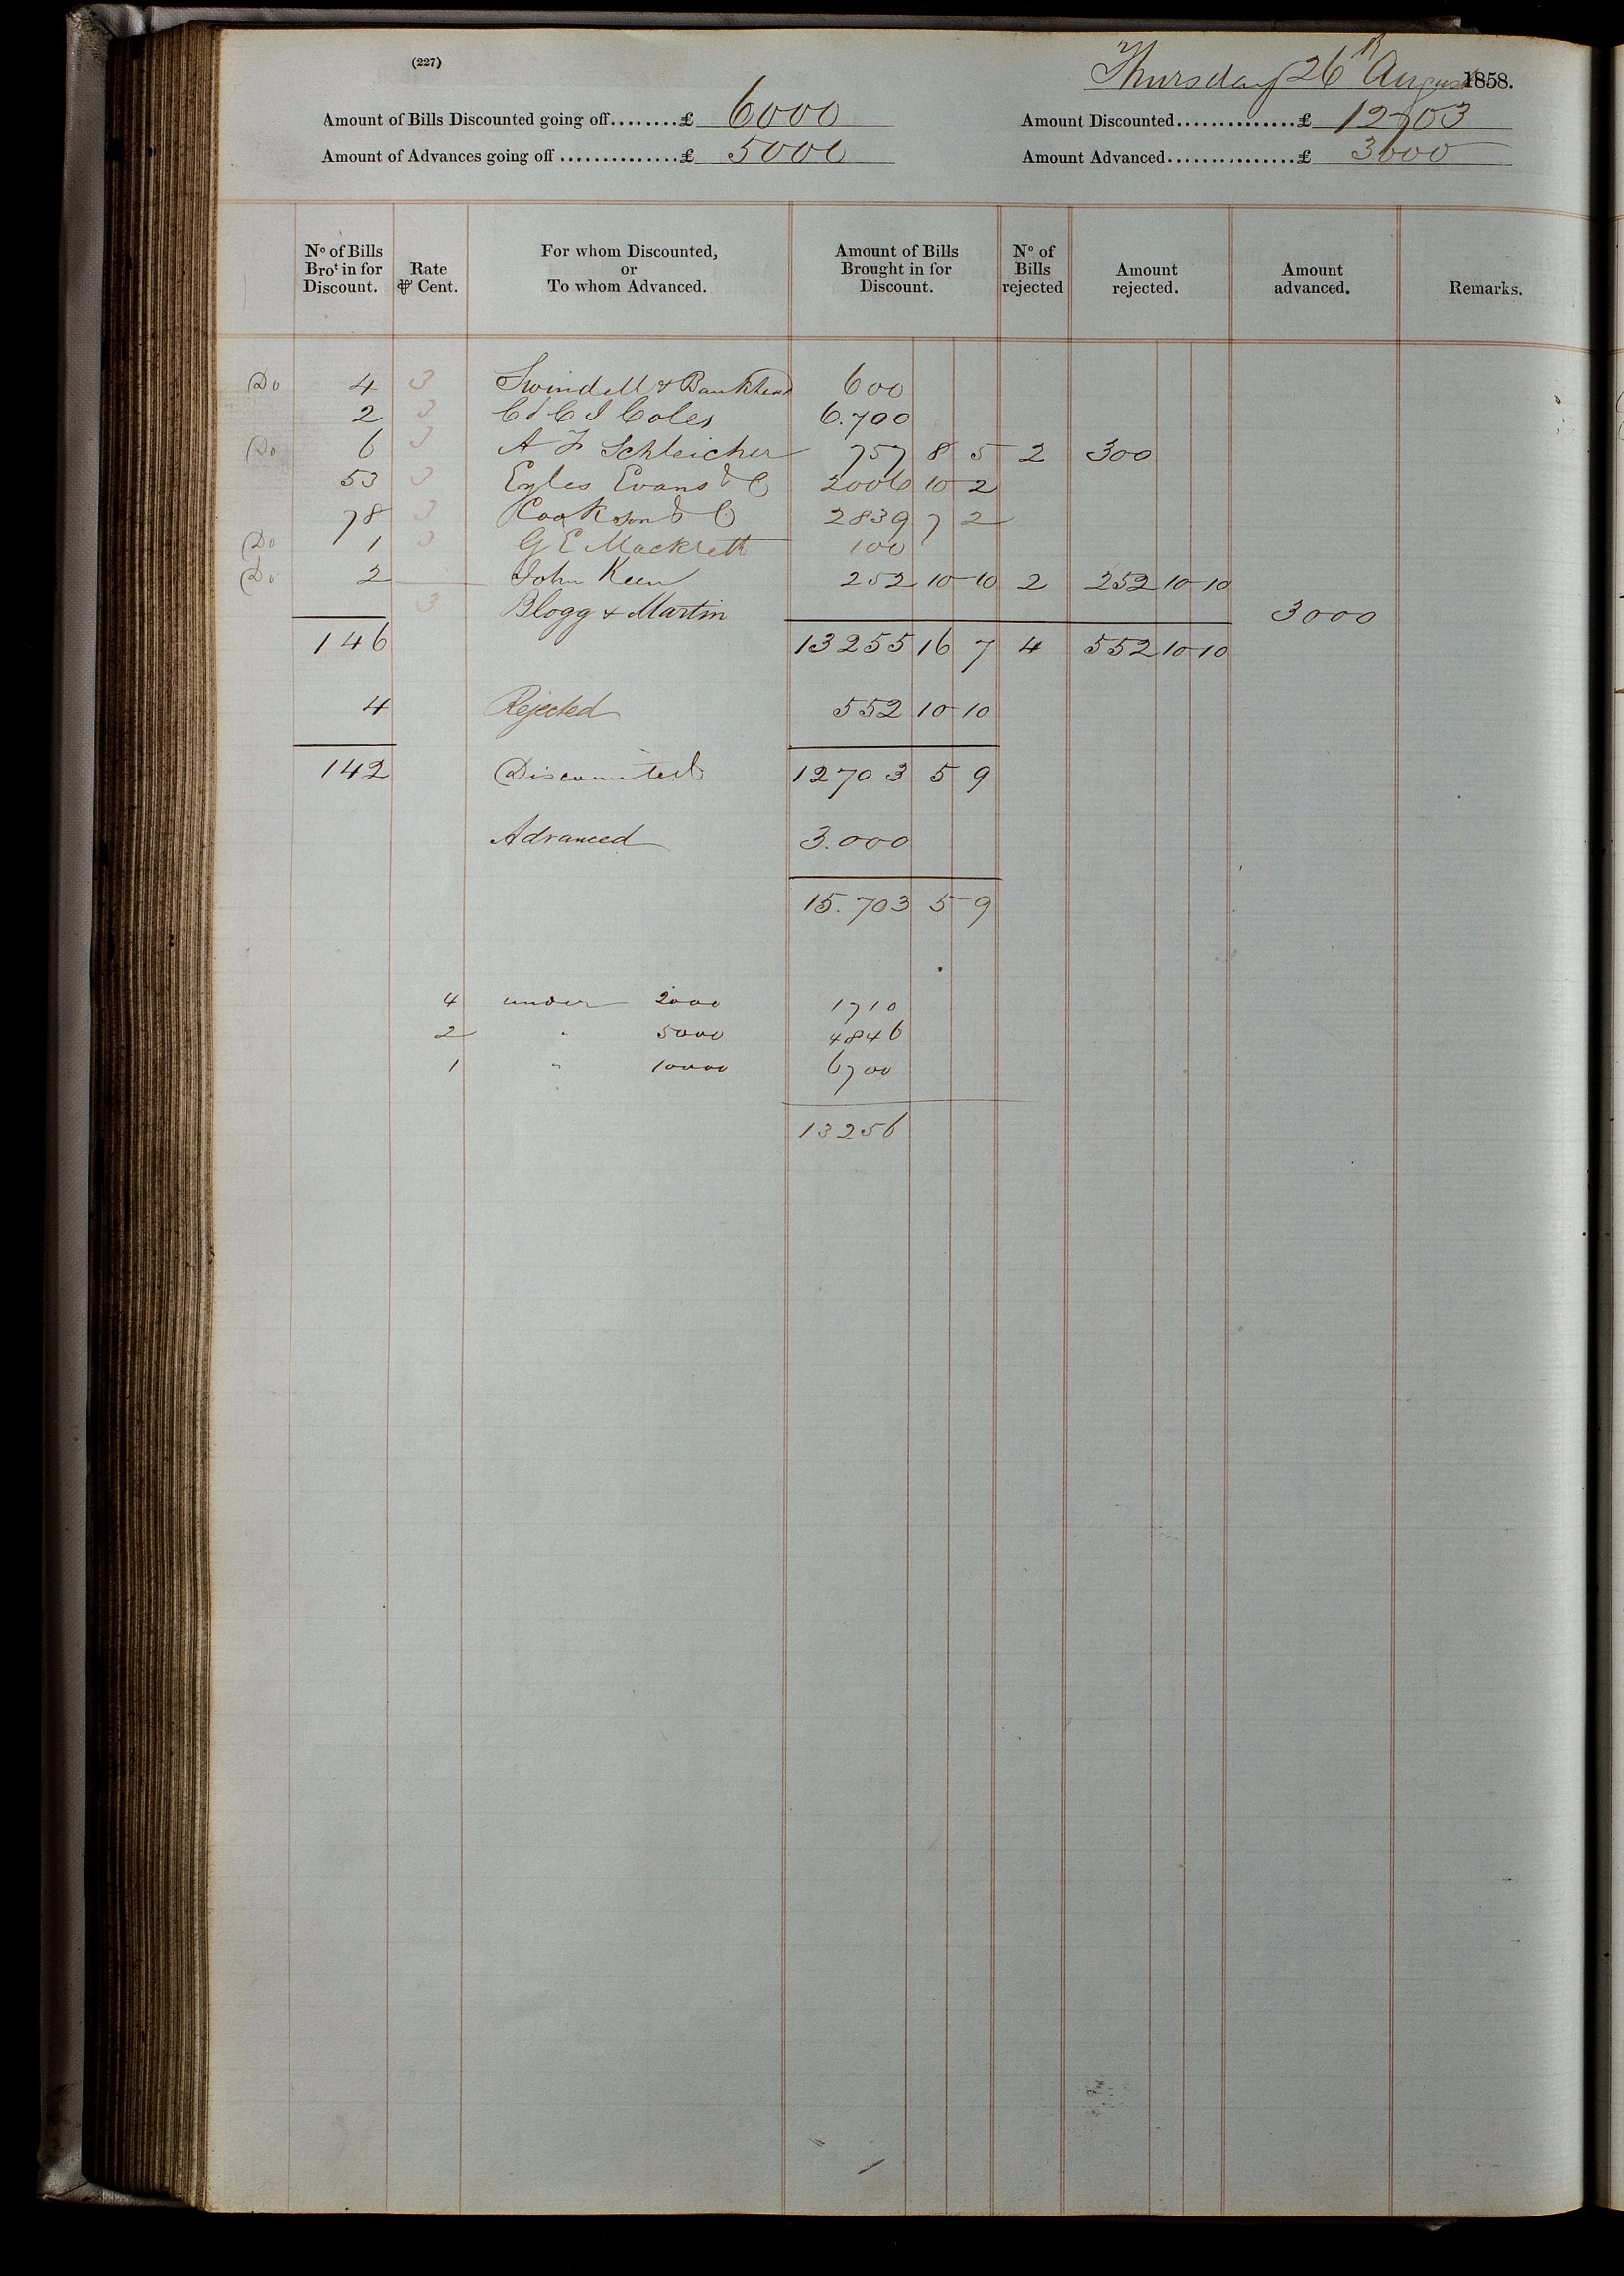 (227)
Thursday 26th August 1858.
Amount of Bills Discounted going off........£ 6000
Amount Discounted..............£ 12703
Amount of Advances going off..............£ 5000
Amount Advanced...............£ 3000
No of Bills Brot in for Discount. Rate ⅌ Cent. For whom Discounted, or To whom Advanced. Amount of Bills Brought in for Discount. No of Bills rejected Amount rejected. Amount advanced. Remarks.
Do 4 3 Swindell & Bankhead 600
2 3 C & C J Coles 6.700
Do 6 3 A F Schleicher 757 8 5 2 300
53 3 Eyles Evans & C 2006 10 2
78 3 Cookson & C 2839 7 2
Do 1 3 G E Mackrett 100
Do 2 John Keen 252 10 10 2 252 10 10
3 Blogg & Martin 3000
146 13255 16 7 4 552 10 10
4 Rejected 552 10 10
142 Discounted 12703 5 9
Advanced 3.000
15.703 5 9
4 under 2000 1710
2 " 5000 4846
1 " 10000 6700
13256